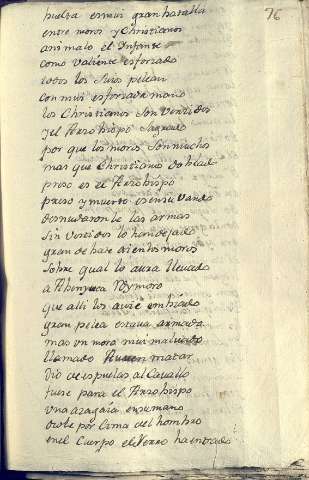 76
buelta es mui gran batalla
entre moros y Christianos
animalo el Infante
como valiente esforzado
todos los suios pelean
con mui esforzada mano
los Christianos son vencidos
y el Arzobispo sagrado
por que los moros son muchos
mas que Christianos
preso es el Arzobispo
preso y muerto
desnudaron le las armas
sin vestidos lo han dejado
gran debate los moros
sobre qual lo avra llevado
a Rey moro
que alli los avie embiado
gran pelea estava armada
mas un moro mui malvado
llamado matar
dio de espuelas al Cavallo
fuese para el Arzobispo
una azagaia en su mano
diole por cima del hombro
en el Cuerpo el Yerro ha entrado